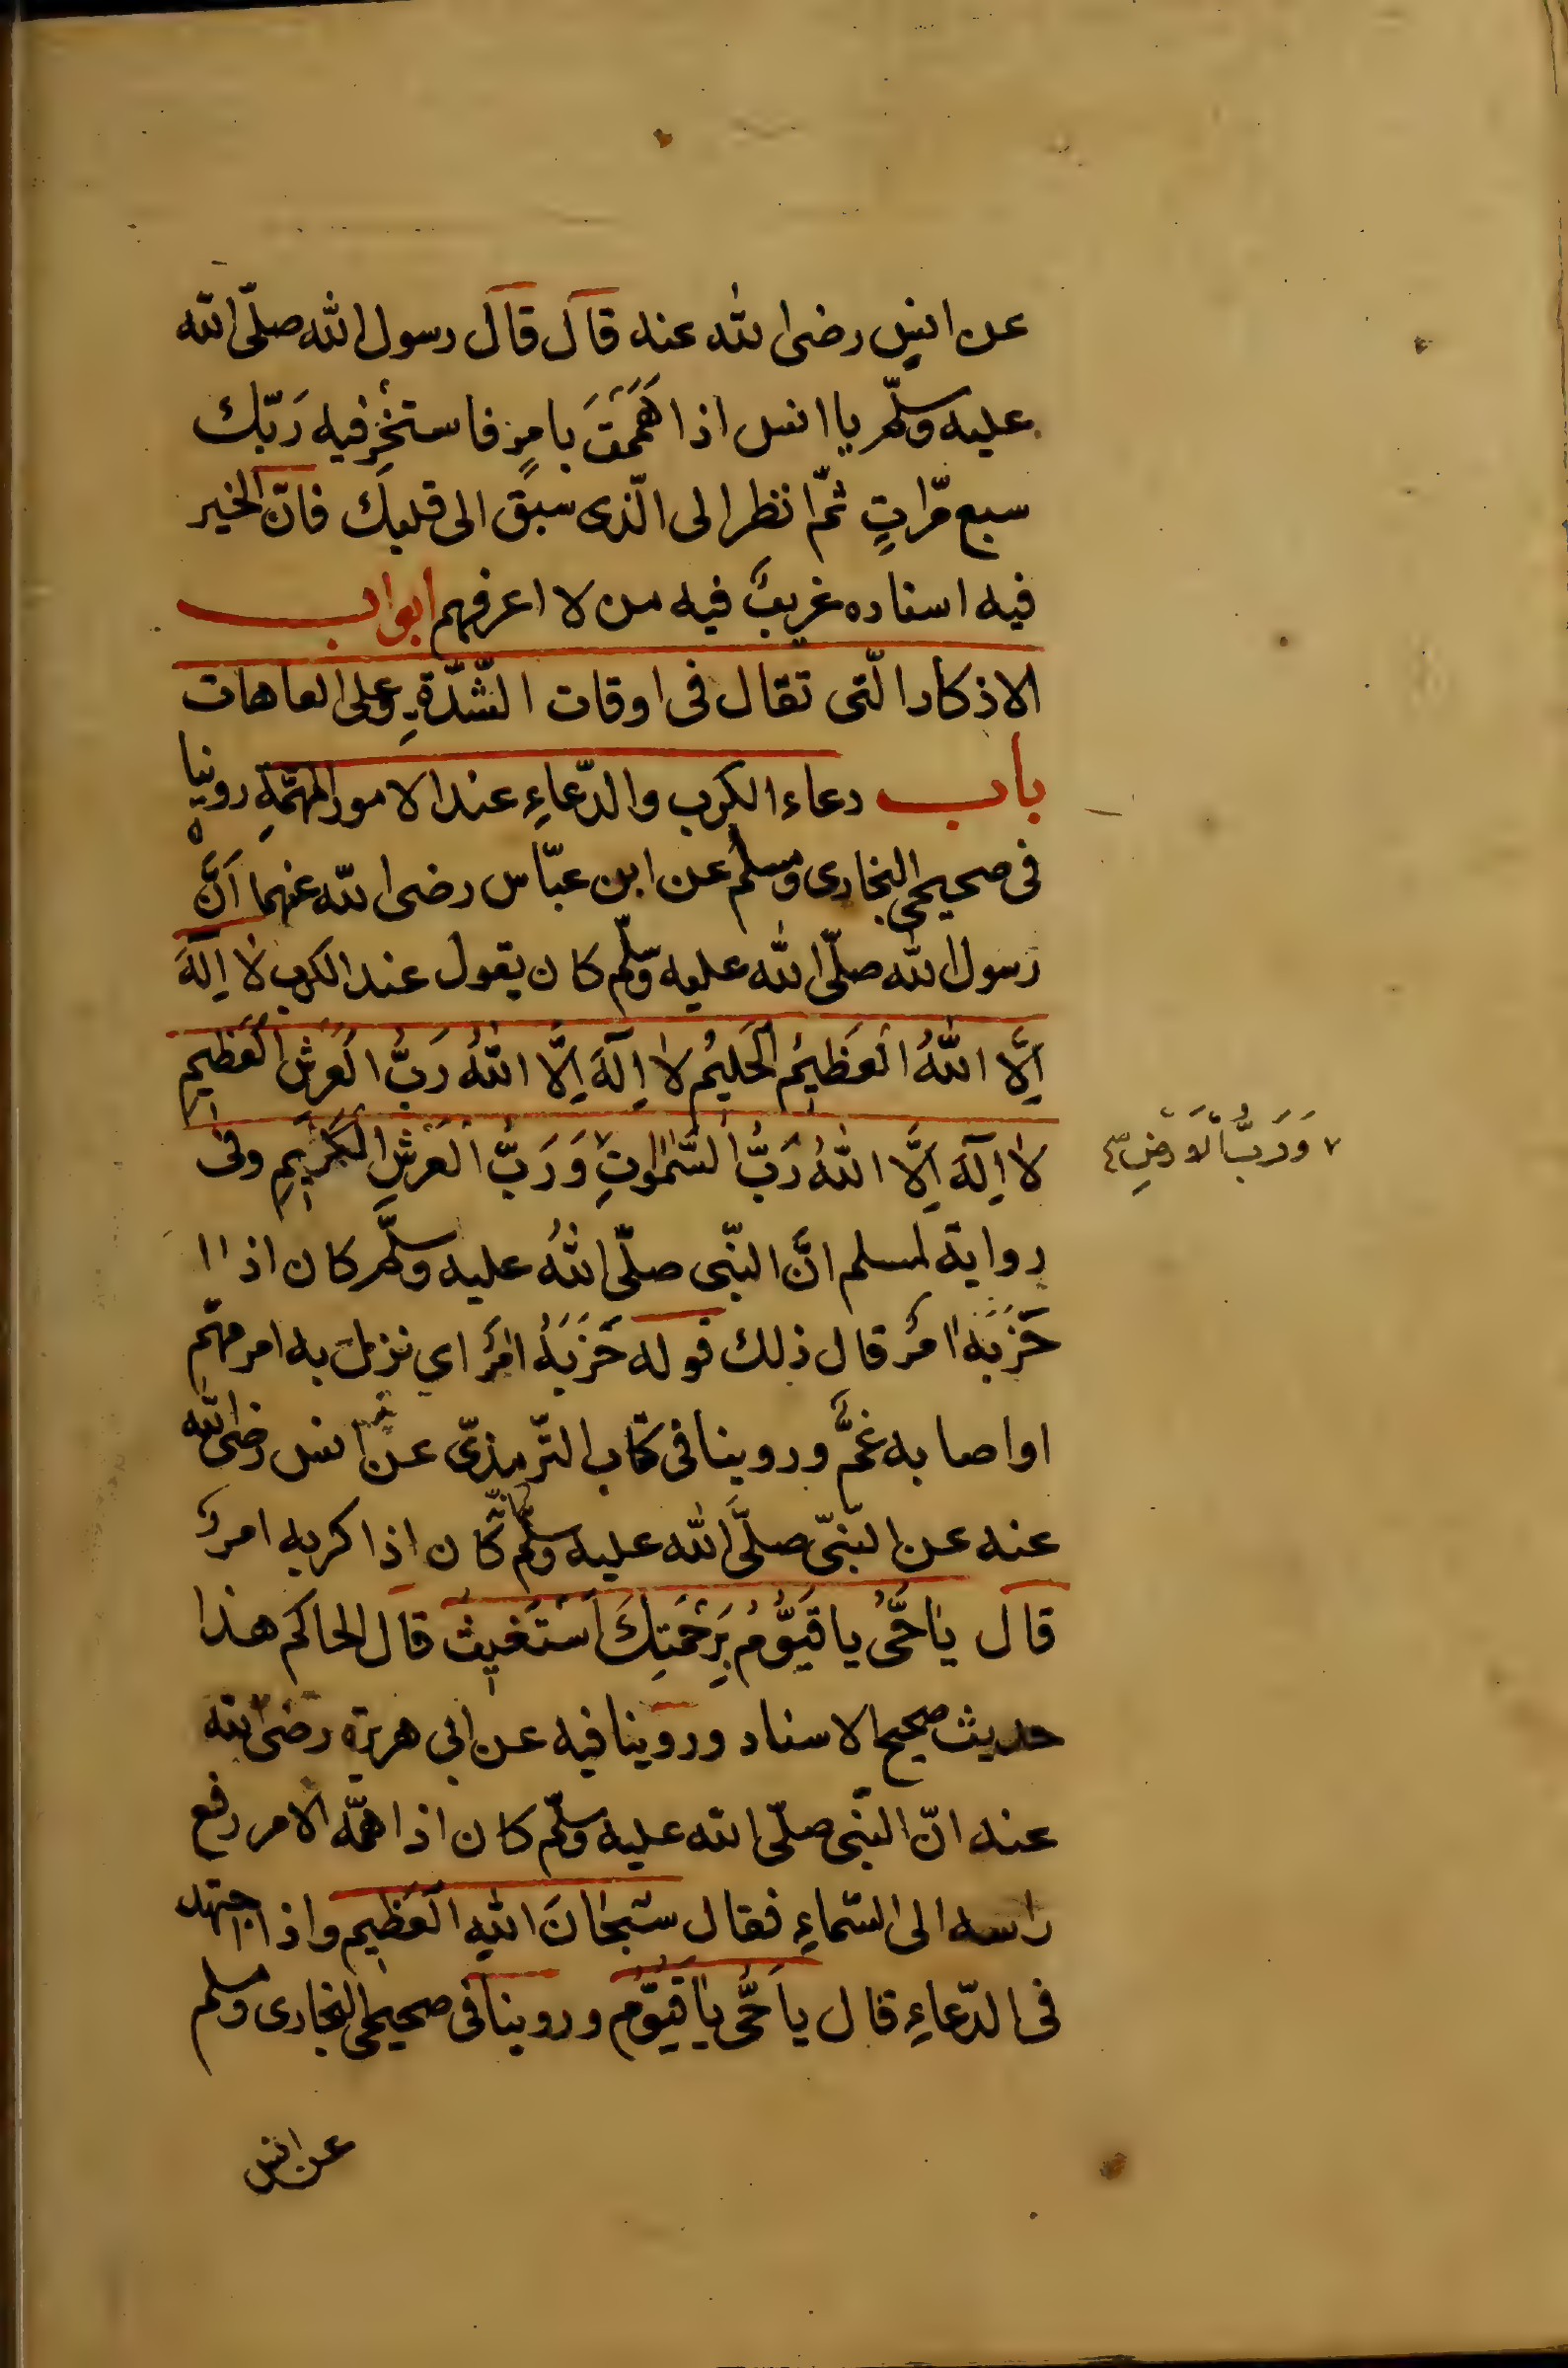 عن انسٍ رضى الله عنه قال قال رسول الله صلّى الله
عليه وسلّم يا انس اذا هَمَمْتَ بامرٍ فاستخِرْ فيه رَبّك
سبع مرّاتٍ ثمّ انظر الى الّذى سبق الى قلبك فانّ الخير
فيه اسناده غريبٌ فيه من لا اعرفهم ابواب
الاذكار الّتى تقال فى اوقات الشّدّةِ وعلى العاهات
باب دعاء الكرب والدّعاءِ عند الامور المهمّةِ روينا
فى صحيحى البخارى ومسلم عن ابن عبّاس رضى الله عنهما اَنَّ
رسول الله صلّى الله عليه وسلّم كان يقول عند الكرب لا اِلٰهَ
اِلَّا اللهُ الْعَظِيْمُ الْحَلِيْمُ لا اِلٰهَ اِلَّا اللهُ رَبُّ الْعَرْشِ الْعَظِيمِ
لا اِلٰهَ اِلَّا اللهُ رَبُّ السَّمٰوٰتِ وَرَبُّ الْعَرْشِ الْكَرِيْمِ وفى
٧ وَرَبُّ الْاَرْضِ صح
رواية لمسلم انَّ النّبى صلّى اللهُ عليه وسلّم كان اذا ا
حَزَبَهُ امْرٌ قال ذلك قوله حَزَبَهُ امْرٌ اي نزل به امر مهمّ
او اصابه غمٌّ وروينا فى كتاب التّرمذىّ عن انس رضى الله
عنه عن النّبىّ صلَّى الله عليه وسلّم انّه كان اذا كربه امرٌ
قال يَا حَىُّ يا قَيُّوْمُ بِرَحْمَتِكَ اَسْتَغِيْثُ قال الحاكم هذا
حديث صحيح الاسناد وروينا فيه عن ابى هريرة رضى الله
عنه انّ النّبى صلّى الله عليه وسلّم كان اذا همّه الامر رفع
راسه الى السّماءِ فقال سُبْحَانَ اللهِ الْعَظِيْمِ واذا اجتهد
فى الدّعاءِ قال يا حَىُّ يا قَيُّوْمُ وروينا فى صحيحى البخارى ومسلم
عن انس